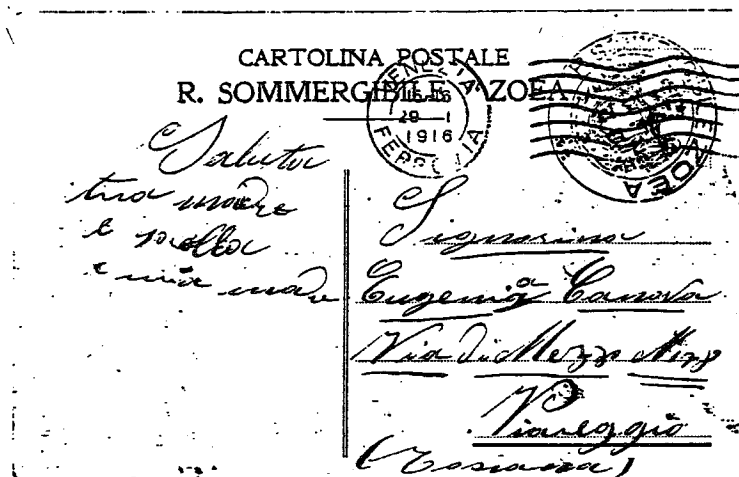 CARTOLINA POSTALE
R. SOMMERGIBILE ZOEA
VENEZIA
15-16
29 - 1
1916
FERROVIA
ZOEA
Saluta
tua madre
e
e mia madre
Signorina
Eugenia Canova
Via di Mezzo
Viareggio
(Toscana)